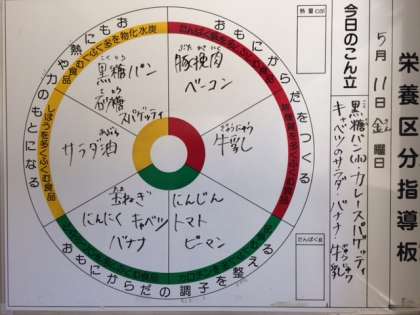 栄養区分指導板
5月11日金曜日
今日のこん立
黒糖パン(小)カレースパゲッティ
キャベツのサラダ バナナ 牛乳
ぎゅうにゅう
熱量
たんぱく質
おもにからだをつくる
たんぱく質を多くふくむ食品
ぶたひきにく
豚挽肉
ベーコン
ぎゅうにゅう
牛乳
おもに熱や力のもとになる
炭水化物を多くふくむ食品
しぼうを多くふくむ食品
こくとう
黒糖パン
さとう
砂糖
スパゲッティ
サラダ油
おもにからだの調子を整える
玉ねぎ
にんにく キャベツ
バナナ
にんじん
トマト
ピーマン